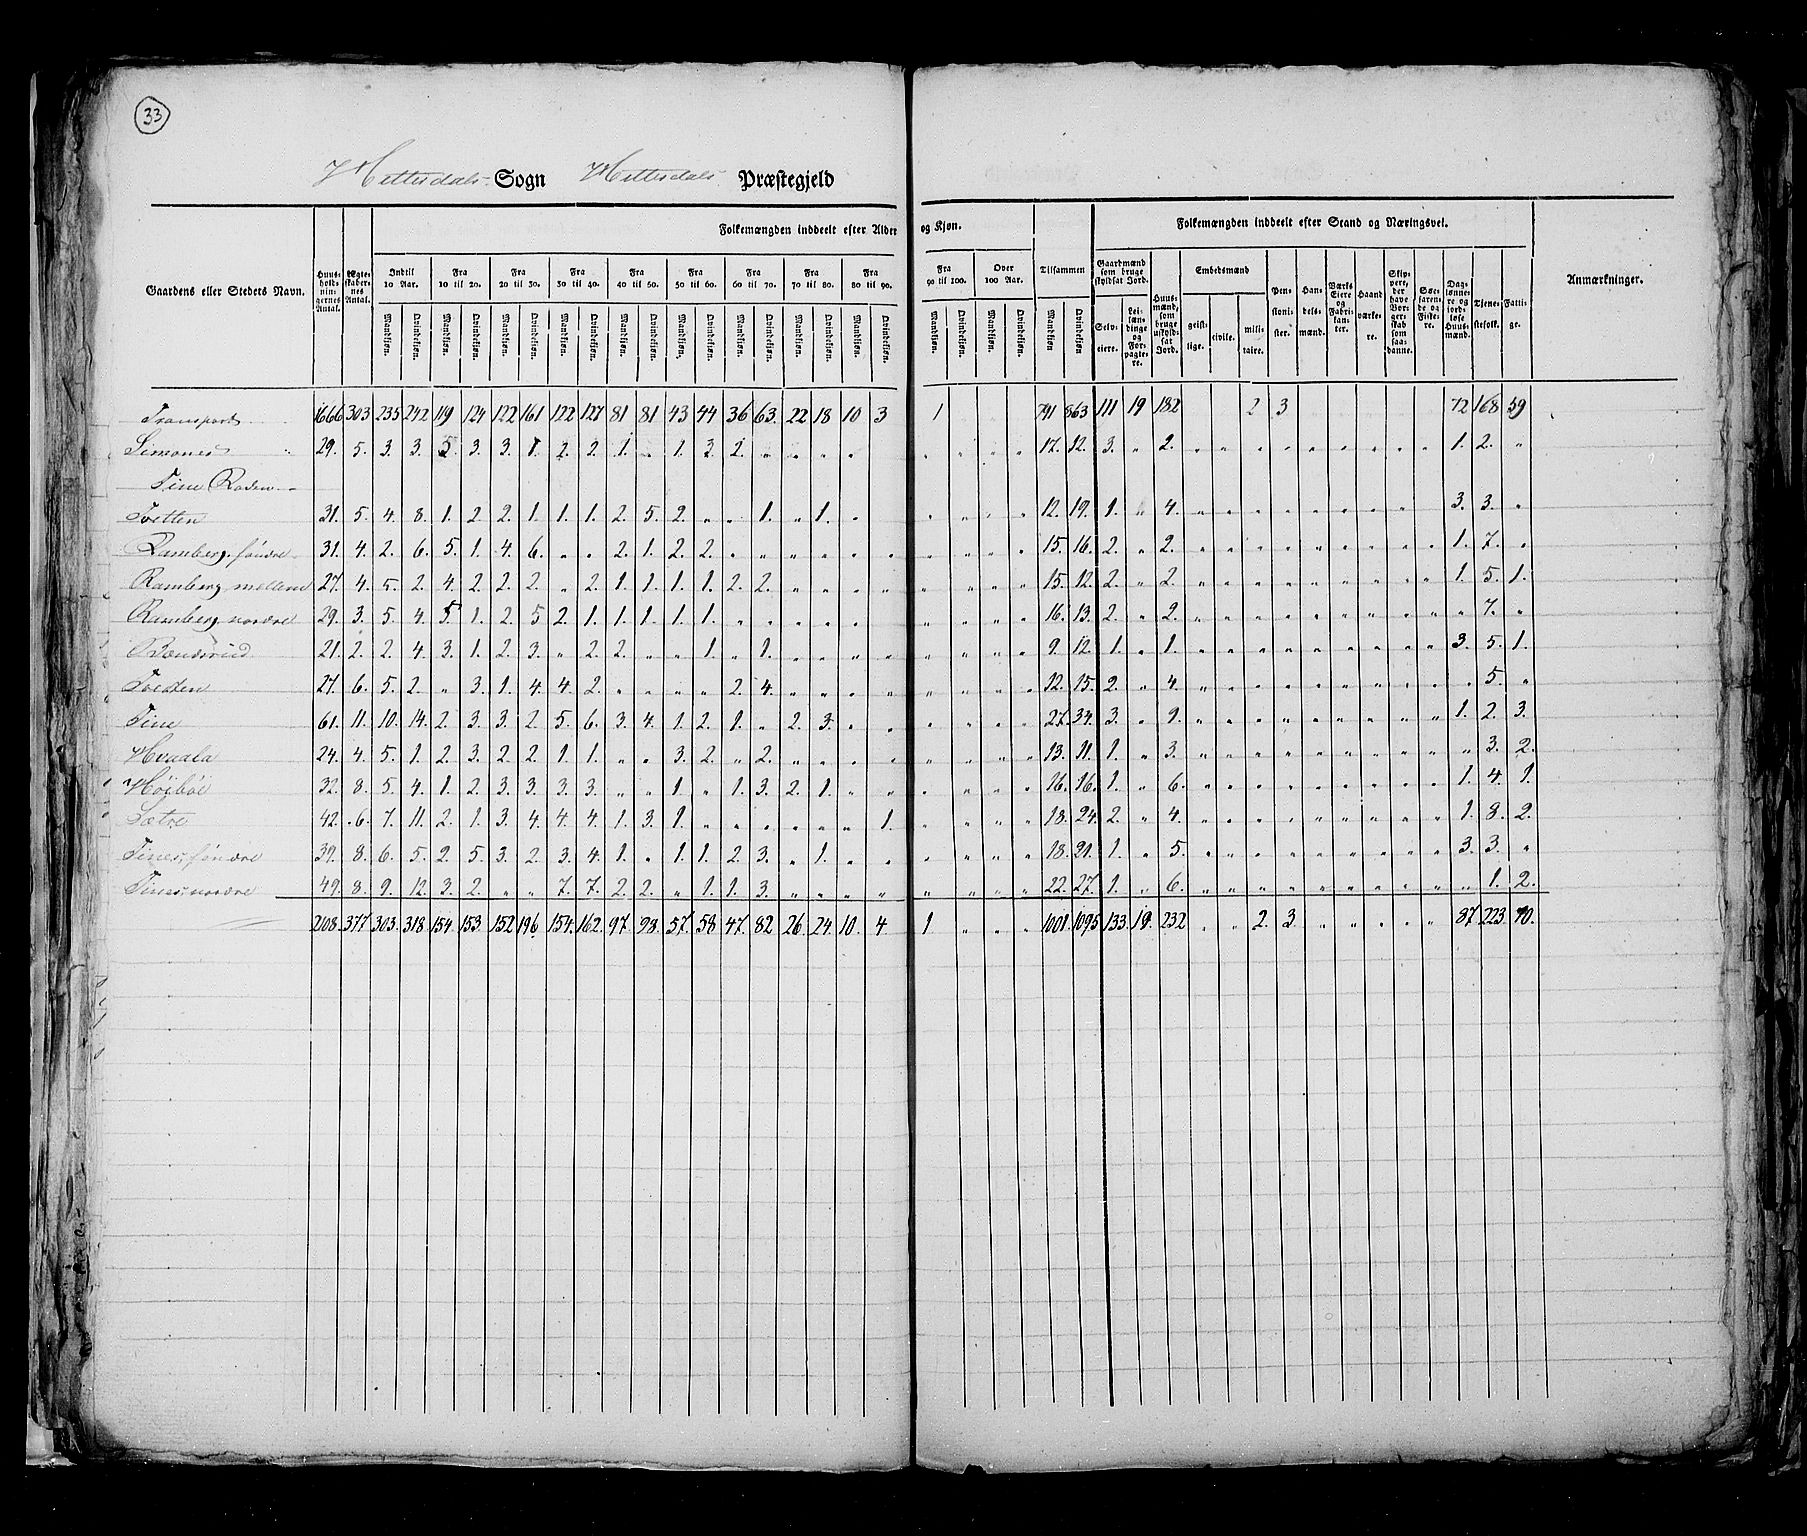 33
Hitterdals Sogn Hitterdals Præstegjeld
Folkemængden inddeelt efter Alder og Kjøn. Folkemængden inddeelt efter Stand og Næringsvei.
Gaardens eller Stedets Navn. Huusholdningernes Antal. Ægteskabernes Antal. Indtil 10 Aar. Fra 10 til 20. Fra 20 til 30. Fra 30 til 40. Fra 40 til 50. Fra 50 til 60. Fra 60 til 70. Fra 70 til 80. Fra 80 til 90. Fra 90 til 100. Over 100 Aar. Tilsammen Gaardmænd som bruge skyldsat Jord. Huusmænd, som bruge uskyldsat Jord. Embedsmænd Pensionister. Handelsmænd. Værks Eiere og Fabrikanter. Haandværkere. Skippere, der have Borgerskab som saadanne. Søefarende og Fiskere. Daglønnere og jordløse Huusmænd. Tjenestefolk. Fattige. Anmærkninger.
Mandkiøn. Qvindekiøn. Mandkiøn. Qvindekiøn. Mandkiøn. Qvindekiøn. Mandkiøn. Qvindekiøn. Mandkiøn. Qvindekiøn. Mandkiøn. Qvindekiøn. Mandkiøn. Qvindekiøn. Mandkiøn. Qvindekiøn. Mandkiøn. Qvindekiøn. Mandkiøn. Qvindekiøn. Mandkiøn. Qvindekiøn. Mandkiøn Qvindekiøn Selveiere. Leilændinge og Forpagtere. geistlige. civile. militaire.
Transport 1666 303 235 242 119 124 122 161 122 127 81 81 43 44 36 63. 22 18 10 3 1 791 863 111 19 182 2 3 72 168 59
Simones 29. 5. 3. 3. 5. 3. 3. 1. 2. 2. 1. „ 1. 3. 2. „ „ „ „ „ „ „ „ 17. 12. 3. „ 2. „ „ „ „ „ „ „ „ „ 1. 2. „
Tine Roden
Tvetten 31. 5. 4. 8. 1. 2 2. 1. 1. 1. 2. 5. 2. „ „ 1. „ 1. „ „ „ „ „ 12. 19. 1. „ 4. „ „ „ „ „ „ „ „ „ 3. 3. „
Ramberg, søndre 31. 4. 2. 6. 5. 1. 4. 6. „ „ 2. 1. 2. 2. „ „ „ „ „ „ „ „ „ „ 15. 16. 2. „ 2. „ „ „ „ „ „ „ „ „ 1. 7. „
Ramberg mellem 27. 4. 5. 2. 4. 2. 2. 2. „ 2. 1. 1. 1. 1. 2. 2. „ „ „ „ „ „ „ „ 15. 12. 2. „ 2. „ „ „ „ „ „ „ „ „ 1. 5. 1.
Ramberg nordre 29. 3. 5. 4. 5. 1. 2. 5 2. 1. 1. 1. 1. 1. „ „ „ „ „ „ „ „ „ „ 16. 13. 2. „ 2. „ „ „ „ „ „ „ „ „ „ 7. „
21. 2. 2. 4. 3. 1. 2. 3. „ 2. 2. „ „ 1. „ 1. „ „ „ „ „ „ „ „ 9. 12. 1. „ 1. „ „ „ „ „ „ „ „ „ 3. 5. 1.
27. 6. 5. 2. „ 3. 1. 4. 4. 2. „ „ „ „ 2. 4. „ „ „ „ „ „ „ „ 12. 15. 2. „ 4. „ „ „ „ „ „ „ „ „ „ 5. „
Tine 61. 11. 10. 14. 2. 3. 3. 2. 5. 6. 3. 4. 1. 2. 1. „ 2. 3. „ „ „ „ „ „ 27. 34. 3. „ 9. „ „ „ „ „ „ „ „ „ 1. 2. 3.
Hvaala 24. 4. 5. 1. 2. 3. 2. 2. 1. 1. „ „ 3. 2. „ 2. „ „ „ „ „ „ „ „ 13. 11. 1. „ 3. „ „ „ „ „ „ „ „ „ „ 3. 2.
Höiböe 32. 8. 5. 4. 1. 2. 3. 3. 3. 3. „ „ 1. „ 1. 3. 2. 1. „ „ „ „ „ „ 16. 16. 1. „ 6. „ „ „ „ „ „ „ „ „ 1. 4. 1.
Sætre 42. 6. 7. 11. 2. 1. 3. 4. 4. 4. 1. 3. 1. „ „ „ „ „ „ 1. „ „ „ „ 18. 24. 2. „ 4. „ „ „ „ „ „ „ „ „ 1. 8. 2.
Tines, søndre 39. 8. 6. 5. 2. 5. 3. 2. 3. 4. 1. „ 1. 1. 2. 3. „ 1. „ „ „ „ „ „ 18. 21. 1. „ 5. „ „ „ „ „ „ „ „ „ 3. 3. „
Tines, nordre 49. 8. 9. 12. 3. 2. „ „ 7. 7. 2. 2. „ 1. 1. 3. „ „ „ „ „ „ „ „ 22. 27. 1. „ 6. „ „ „ „ „ „ „ „ „ „ 1. 2.
2108. 377 303. 318 154. 153. 152 196. 154. 162. 97. 98. 57. 58 47. 82 26. 24. 10. 4 1 „ „ „ 1001. 1095 133. 19. 232 „ „ 2. 3 „ „ „ „ „ 87 223 70.